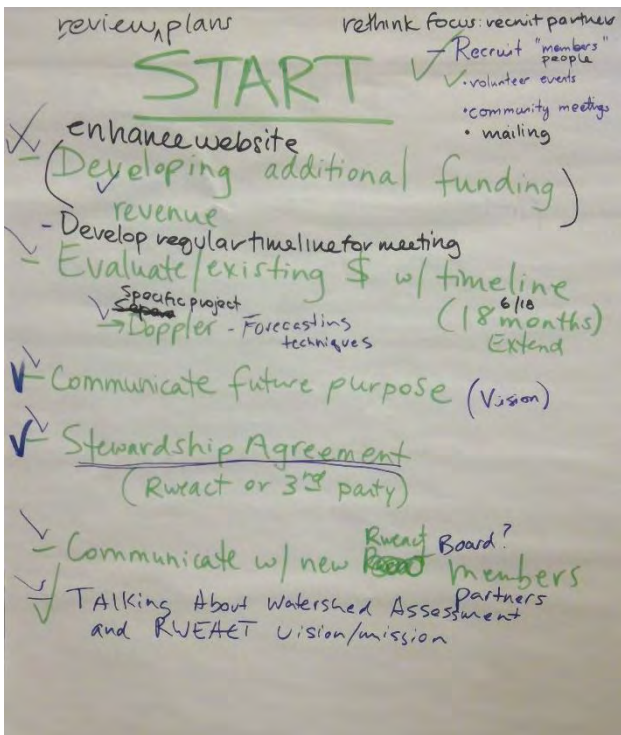 review ^ plans
rethink focus: recruit partners
- Recruit "members"
people
• volunteer events
• community meetings
• mailing
START
enhance website
- Developing additional funding
revenue
- Develop regular timeline for meeting
- Evaluate/existing $ w/ timeline
Specific project
→ Doppler - Forecasting
techniques
6/18
(18 months)
Extend
- Communicate future purpose (Vision)
- Stewardship Agreement
(Rweact or 3rd party)
- Communicate w/ new Rweact Board?
members
partners
- TALKing About Watershed Assessment
and RWEACT vision/mission